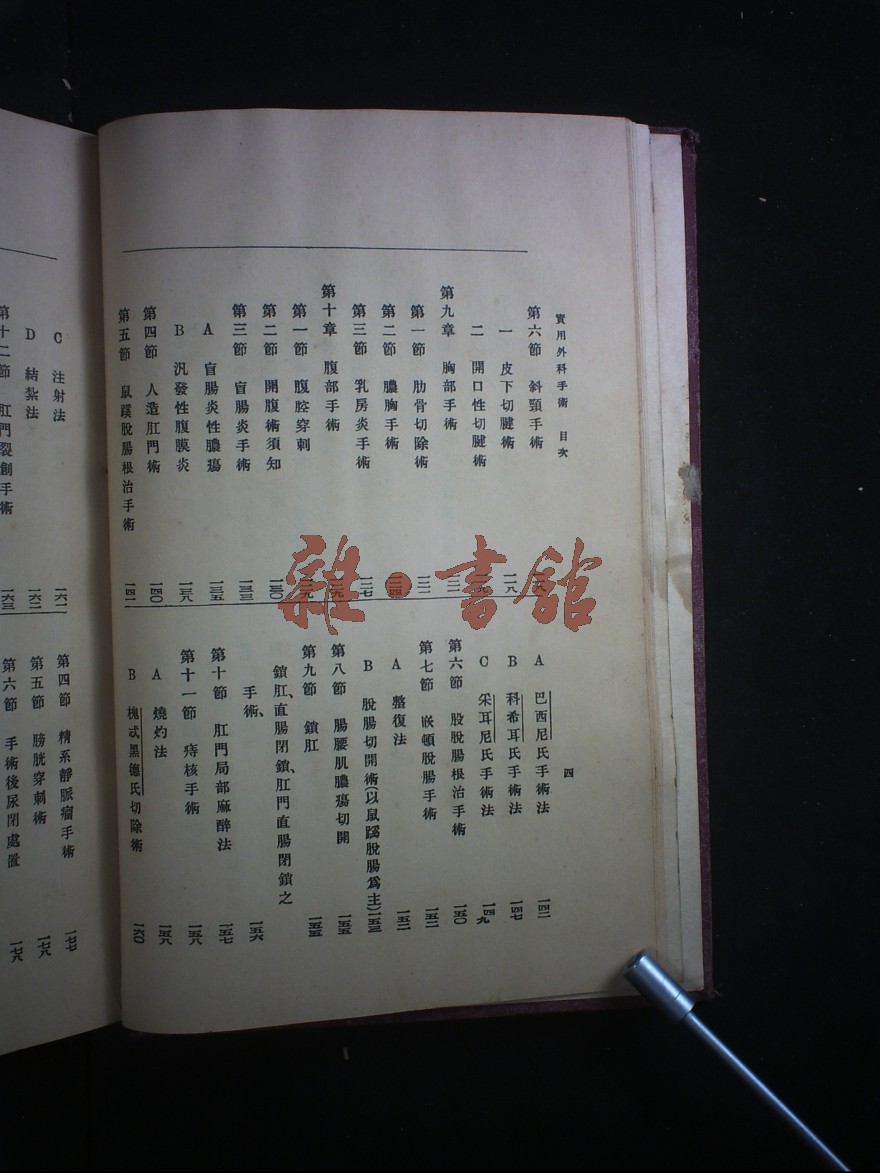 實用外科手術　目次
四
第六節　斜頸手術
一　皮下切腱術　一一八
二　開口性切腱術
第九章　胸部手術
第一節　肋骨切除術
第二節　膿胸手術
第三節　乳房炎手術　一二七
第十章　腹部手術
第一節　腹腔穿刺
第二節　開腹術須知　一三〇
第三節　盲腸炎手術　一三三
A　盲腸炎性膿瘍　一三五
B　汎發性腹膜炎　一三八
第四節　人造肛門術　一四〇
第五節　鼠蹊脫腸根治手術　一四一
A　巴西尼氏手術法　一四二
B　科希耳氏手術法　一四七
C　采耳尼氏手術法　一四九
第六節　股脫腸根治手術　一五〇
第七節　嵌頓脫腸手術　一五二
A　整復法　一五二
B　脫腸切開術(以鼠蹊脫腸爲主)　一五三
第八節　腸腰肌膿瘍切開　一五五
第九節　鎖肛　一五五
鎖肛、直腸閉鎖、肛門直腸閉鎖之
手術、　一五六
第十節　肛門局部麻醉法　一五七
第十一節　痔核手術　一五八
A　燒灼法　一五八
B　槐忒黑德氏切除術　一六〇
C　注射法　一六一
D　結紮法　一六二
第十二節　肛門裂創手術　一六三
第四節　精系靜脈瘤手術　一七七
第五節　膀胱穿刺術　一七八
第六節　手術後尿閉處置　一七八
雜·書館